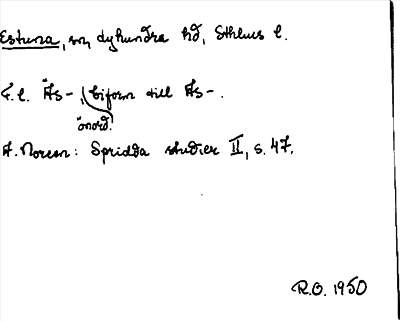 Estuna, sn, Lyhundra hd, Sthlms l.
F.l. Äs-, biform till Ás-.
önord.
A. Noreen: Spridda studier II, s. 47.
R.O. 1950